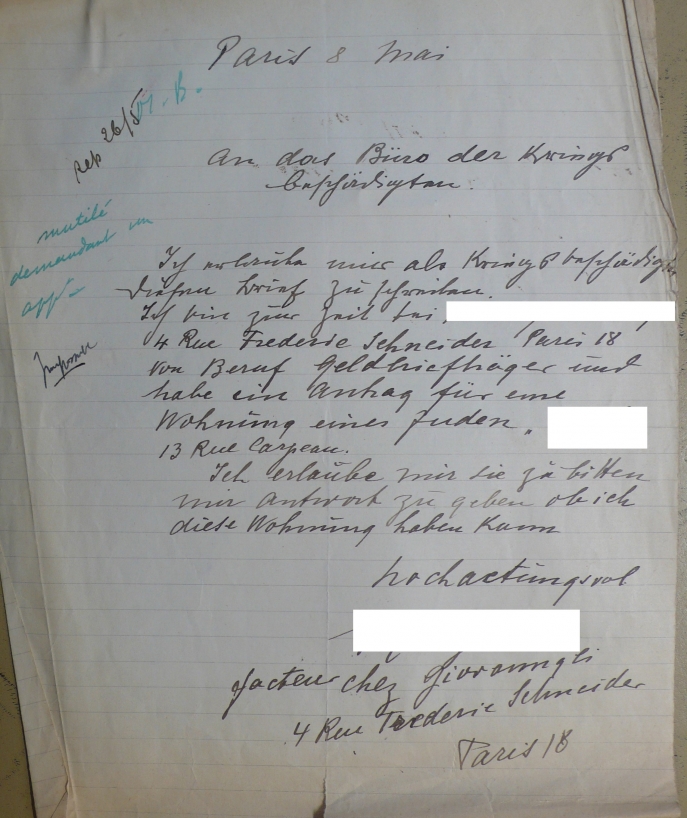 Paris 8 Mai
rep 26/5
An das Büro der Krings
beschädigten.
mutilé
demandant un
appt
Ich erlaube mir als Krings beschädigter
diesen brief zu schreiben.
Ich bin zur Zeit bei
4 Rue Frederic Schneider Paris 18
von Beruf Geldbriefträger und
habe ein Antrag für eine
Wohnung eines Juden
13 Rue Carpeau.
Ich erlaube mir sie zu bitten
mir antwort zu geben ob ich
diese Wohnung haben kann
hochactungsvol
facteur chez
4 Rue Frederic Schneider
Paris 18